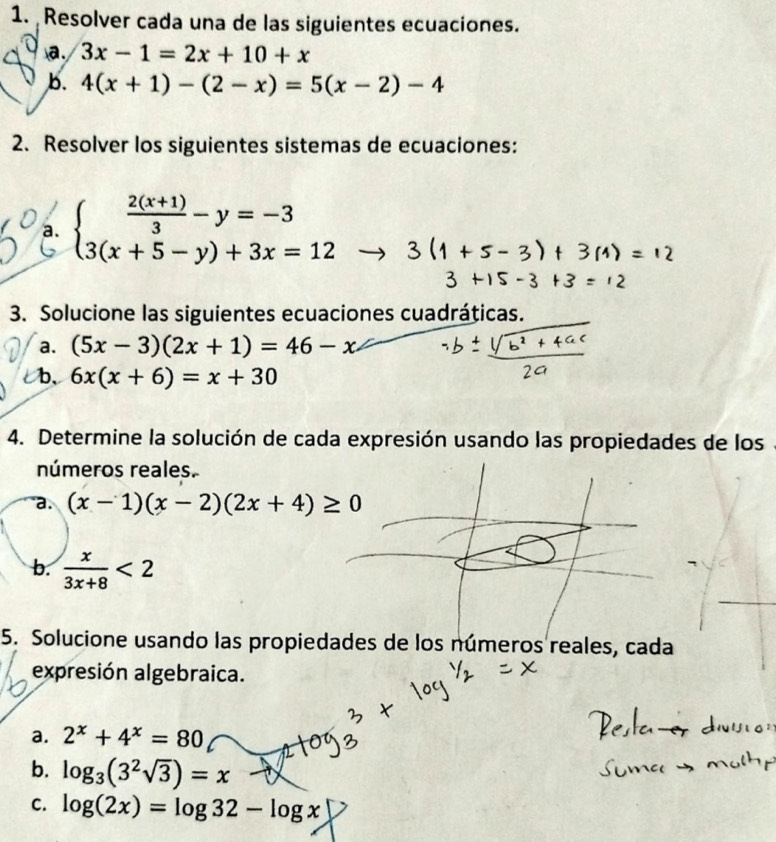 1. Resolver cada una de las siguientes ecuaciones.
a. 3x − 1 = 2x + 10 + x
b. 4(x + 1) − (2 − x) = 5(x − 2) − 4
2. Resolver los siguientes sistemas de ecuaciones:
a. { 2(x+1)/3 − y = −3
3(x + 5 − y) + 3x = 12 → 3(1 + 5 - 3) + 3(1) = 12
3 + 15 - 3 + 3 = 12
3. Solucione las siguientes ecuaciones cuadráticas.
a. (5x − 3)(2x + 1) = 46 − x
-b ± √b² + 4ac / 2a
b. 6x(x + 6) = x + 30
4. Determine la solución de cada expresión usando las propiedades de los
números reales.
a. (x − 1)(x − 2)(2x + 4) ≥ 0
b. x/(3x+8) < 2
5. Solucione usando las propiedades de los números reales, cada
expresión algebraica.
a. 2ˣ + 4ˣ = 80
2 log₃ 3 + log ½ = x
b. log₃(3²√3) = x
c. log(2x) = log 32 − log x
Resta → division
Suma → multip